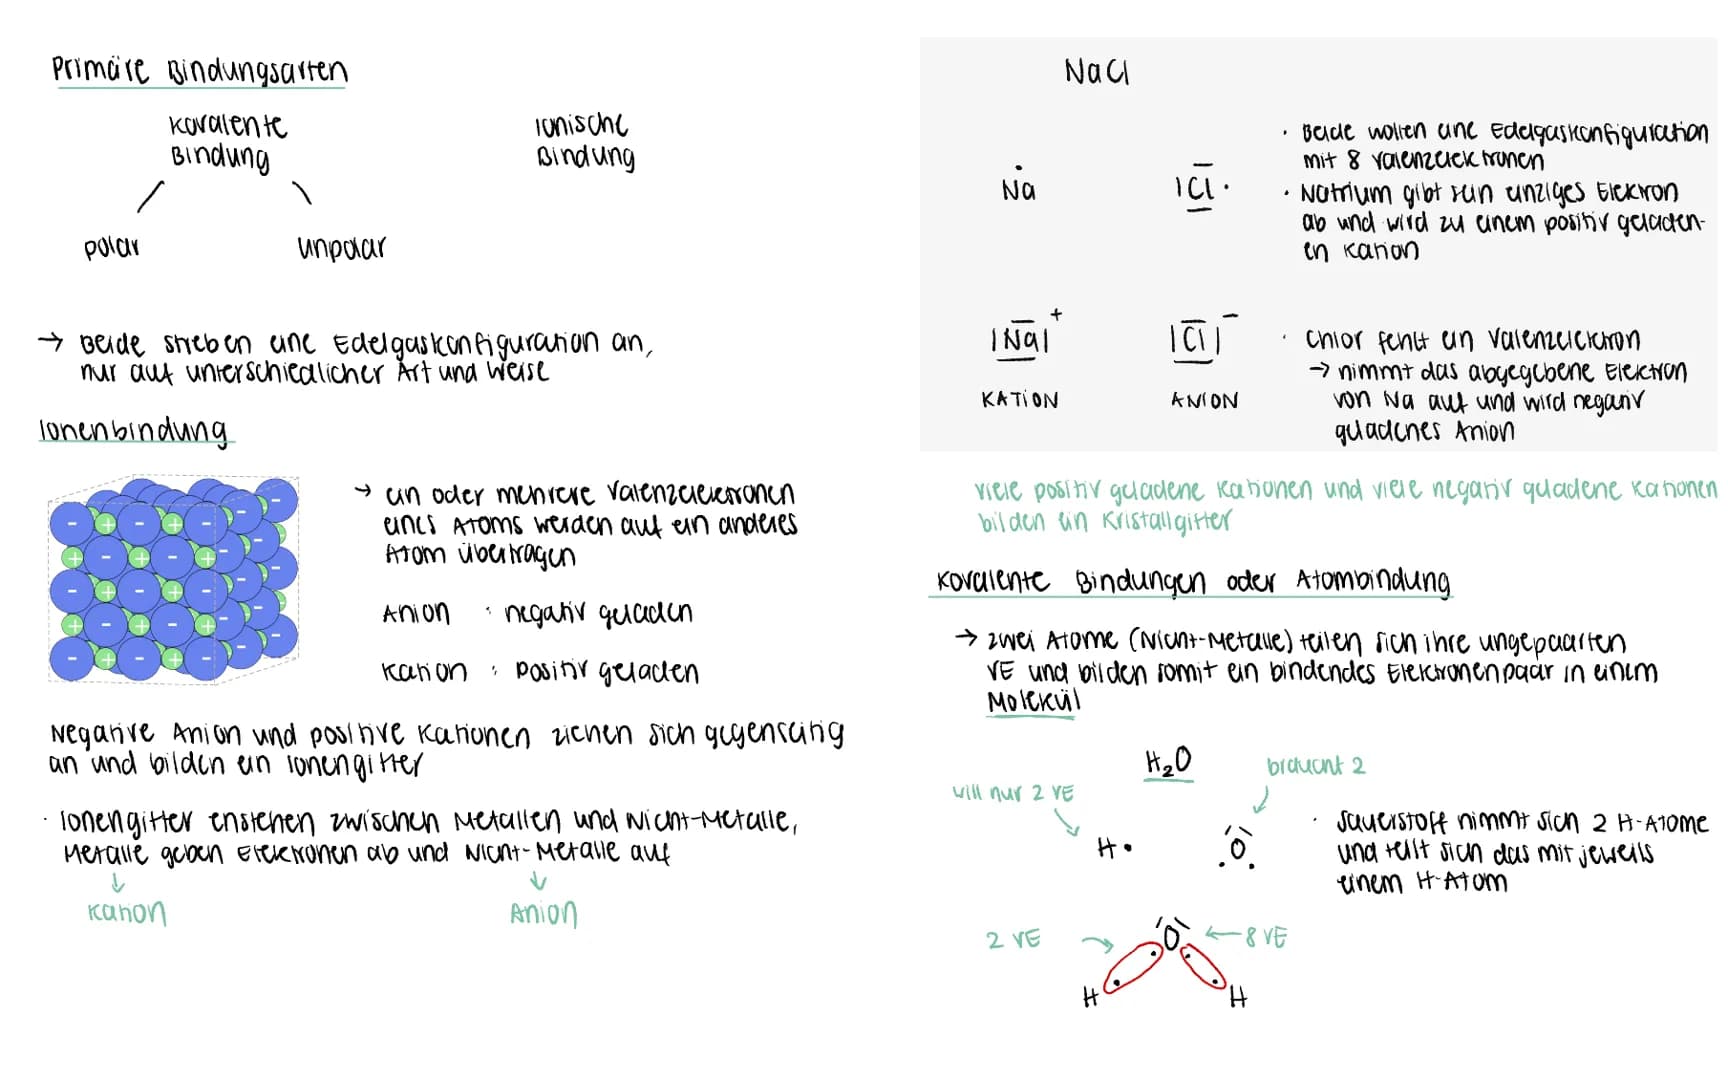 Primäre Bindungsarten
Kovalente
Bindung
Ionische
Bindung
polar
unpolar
→ Beide streben eine Edelgaskonfiguration an,
nur auf unterschiedlicher Art und Weise
Ionenbindung
→ ein oder mehrere Valenzelektronen
eines Atoms werden auf ein anderes
Atom übertragen
Anion : negativ geladen
Kation : positiv geladen
Negative Anion und positive Kationen ziehen sich gegenseitig
an und bilden ein Ionengitter
· Ionengitter enstehen zwischen Metallen und Nicht-Metalle,
Metalle geben Elektronen ab und Nicht-Metalle auf
↓ ↓
Kation Anion
NaCl
Na |Cl·
· Beide wollen eine Edelgaskonfiguration
mit 8 Valenzelektronen
· Natrium gibt sein einziges Elektron
ab und wird zu einem positiv geladen-
en Kation
|Na|⁺ |Cl|⁻
KATION ANION
· Chlor fehlt ein Valenzelektron
→ nimmt das abgegebene Elektron
von Na auf und wird negativ
geladenes Anion
viele positiv geladene Kationen und viele negativ geladene Kationen
bilden ein Kristallgitter
Kovalente Bindungen oder Atombindung
→ zwei Atome (Nicht-Metalle) teilen sich ihre ungepaarten
VE und bilden somit ein bindendes Elektronenpaar in einem
Molekül
H₂O
will nur 2 VE
braucht 2
H·
·O·
· Sauerstoff nimmt sich 2 H-Atome
und teilt sich das mit jeweils
einem H-Atom
2 VE
O
← 8 VE
H H